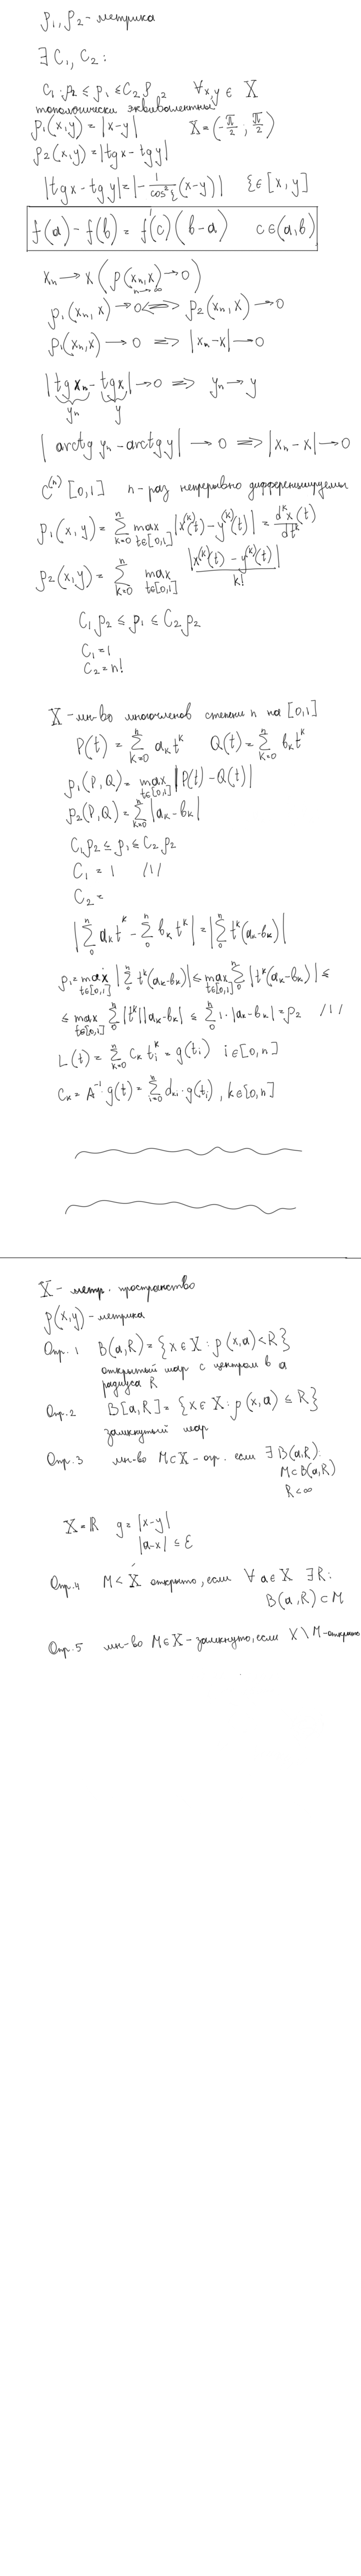 ρ₁, ρ₂ - метрика
∃ C₁, C₂:
C₁·ρ₂ ≤ ρ₁ ≤ C₂ρ₂ ∀x,y ∈ X
топологически эквивалентны
ρ₁(x,y) = |x-y| X = (-π/2 ; π/2)
ρ₂(x,y) = |tgx - tgy|
|tgx - tgy| = |- 1/cos²ξ (x-y)| ξ ∈ [x, y]
f(a) - f(b) = f'(c)(b-a) c∈(a,b)
xₙ → x (ρ(xₙ,x) → 0)
n→∞
ρ₁(xₙ, x) → 0 <=> ρ₂(xₙ, x) → 0
ρ₁(xₙ,x) → 0 => |xₙ-x| → 0
|tg xₙ - tgx| → 0 => yₙ → y
yₙ y
| arctg yₙ - arctg y| → 0 => |xₙ-x| → 0
C⁽ⁿ⁾[0,1] n-раз непрерывно дифференцируемы
ρ₁(x,y) = Σₖ₌₀ⁿ max t∈[0,1] |x⁽ᵏ⁾(t) - y⁽ᵏ⁾(t)| = dᵏx(t)/dtᵏ
ρ₂(x,y) = Σₖ₌₀ⁿ max t∈[0,1] |x⁽ᵏ⁾(t) - y⁽ᵏ⁾(t)|/k!
C₁ρ₂ ≤ ρ₁ ≤ C₂ρ₂
C₁ = 1
C₂ = n!
X - мн-во многочленов степени n на [0,1]
P(t) = Σₖ₌₀ⁿ aₖtᵏ Q(t) = Σₖ₌₀ⁿ bₖtᵏ
ρ₁(P,Q) = max t∈[0,1] |P(t) - Q(t)|
ρ₂(P,Q) = Σₖ₌₀ⁿ |aₖ - bₖ|
C₁ρ₂ ≤ ρ₁ ≤ C₂ρ₂
C₁ = 1 /1/
C₂ =
|Σ₀ⁿ aₖtᵏ - Σ₀ⁿ bₖtᵏ| = |Σ₀ⁿ tᵏ(aₖ-bₖ)|
ρ₁ = max t∈[0,1] |Σ₀ⁿ tᵏ(aₖ-bₖ)| ≤ max t∈[0,1] Σ₀ⁿ |tᵏ(aₖ-bₖ)| ≤
≤ max t∈[0,1] Σ₀ⁿ |tᵏ||aₖ-bₖ| ≤ Σ₀ⁿ 1·|aₖ-bₖ| = ρ₂ /1/
L(t) = Σₖ₌₀ⁿ cₖ tᵢᵏ = g(tᵢ) i∈[0,n]
cₖ = A⁻¹·g(t) = Σᵢ₌₀ⁿ dₖᵢ·g(tᵢ), k∈[0,n]
X - метр. пространство
ρ(x,y) - метрика
Опр. 1 B(a,R) = {x∈X : ρ(x,a) < R}
открытый шар с центром в a
радиуса R
Опр.2 B[a,R] = {x∈X : ρ(x,a) ≤ R}
замкнутый шар
Опр.3 мн-во M⊂X - огр. если ∃ B(a,R):
M⊂B(a,R)
R<∞
X = ℝ g = |x-y|
|a-x| ≤ ε
Опр.4 M < X открыто, если ∀ a∈X ∃R:
B(a,R) ⊂ M
Опр.5 мн-во M∈X - замкнуто, если X\M - открыто